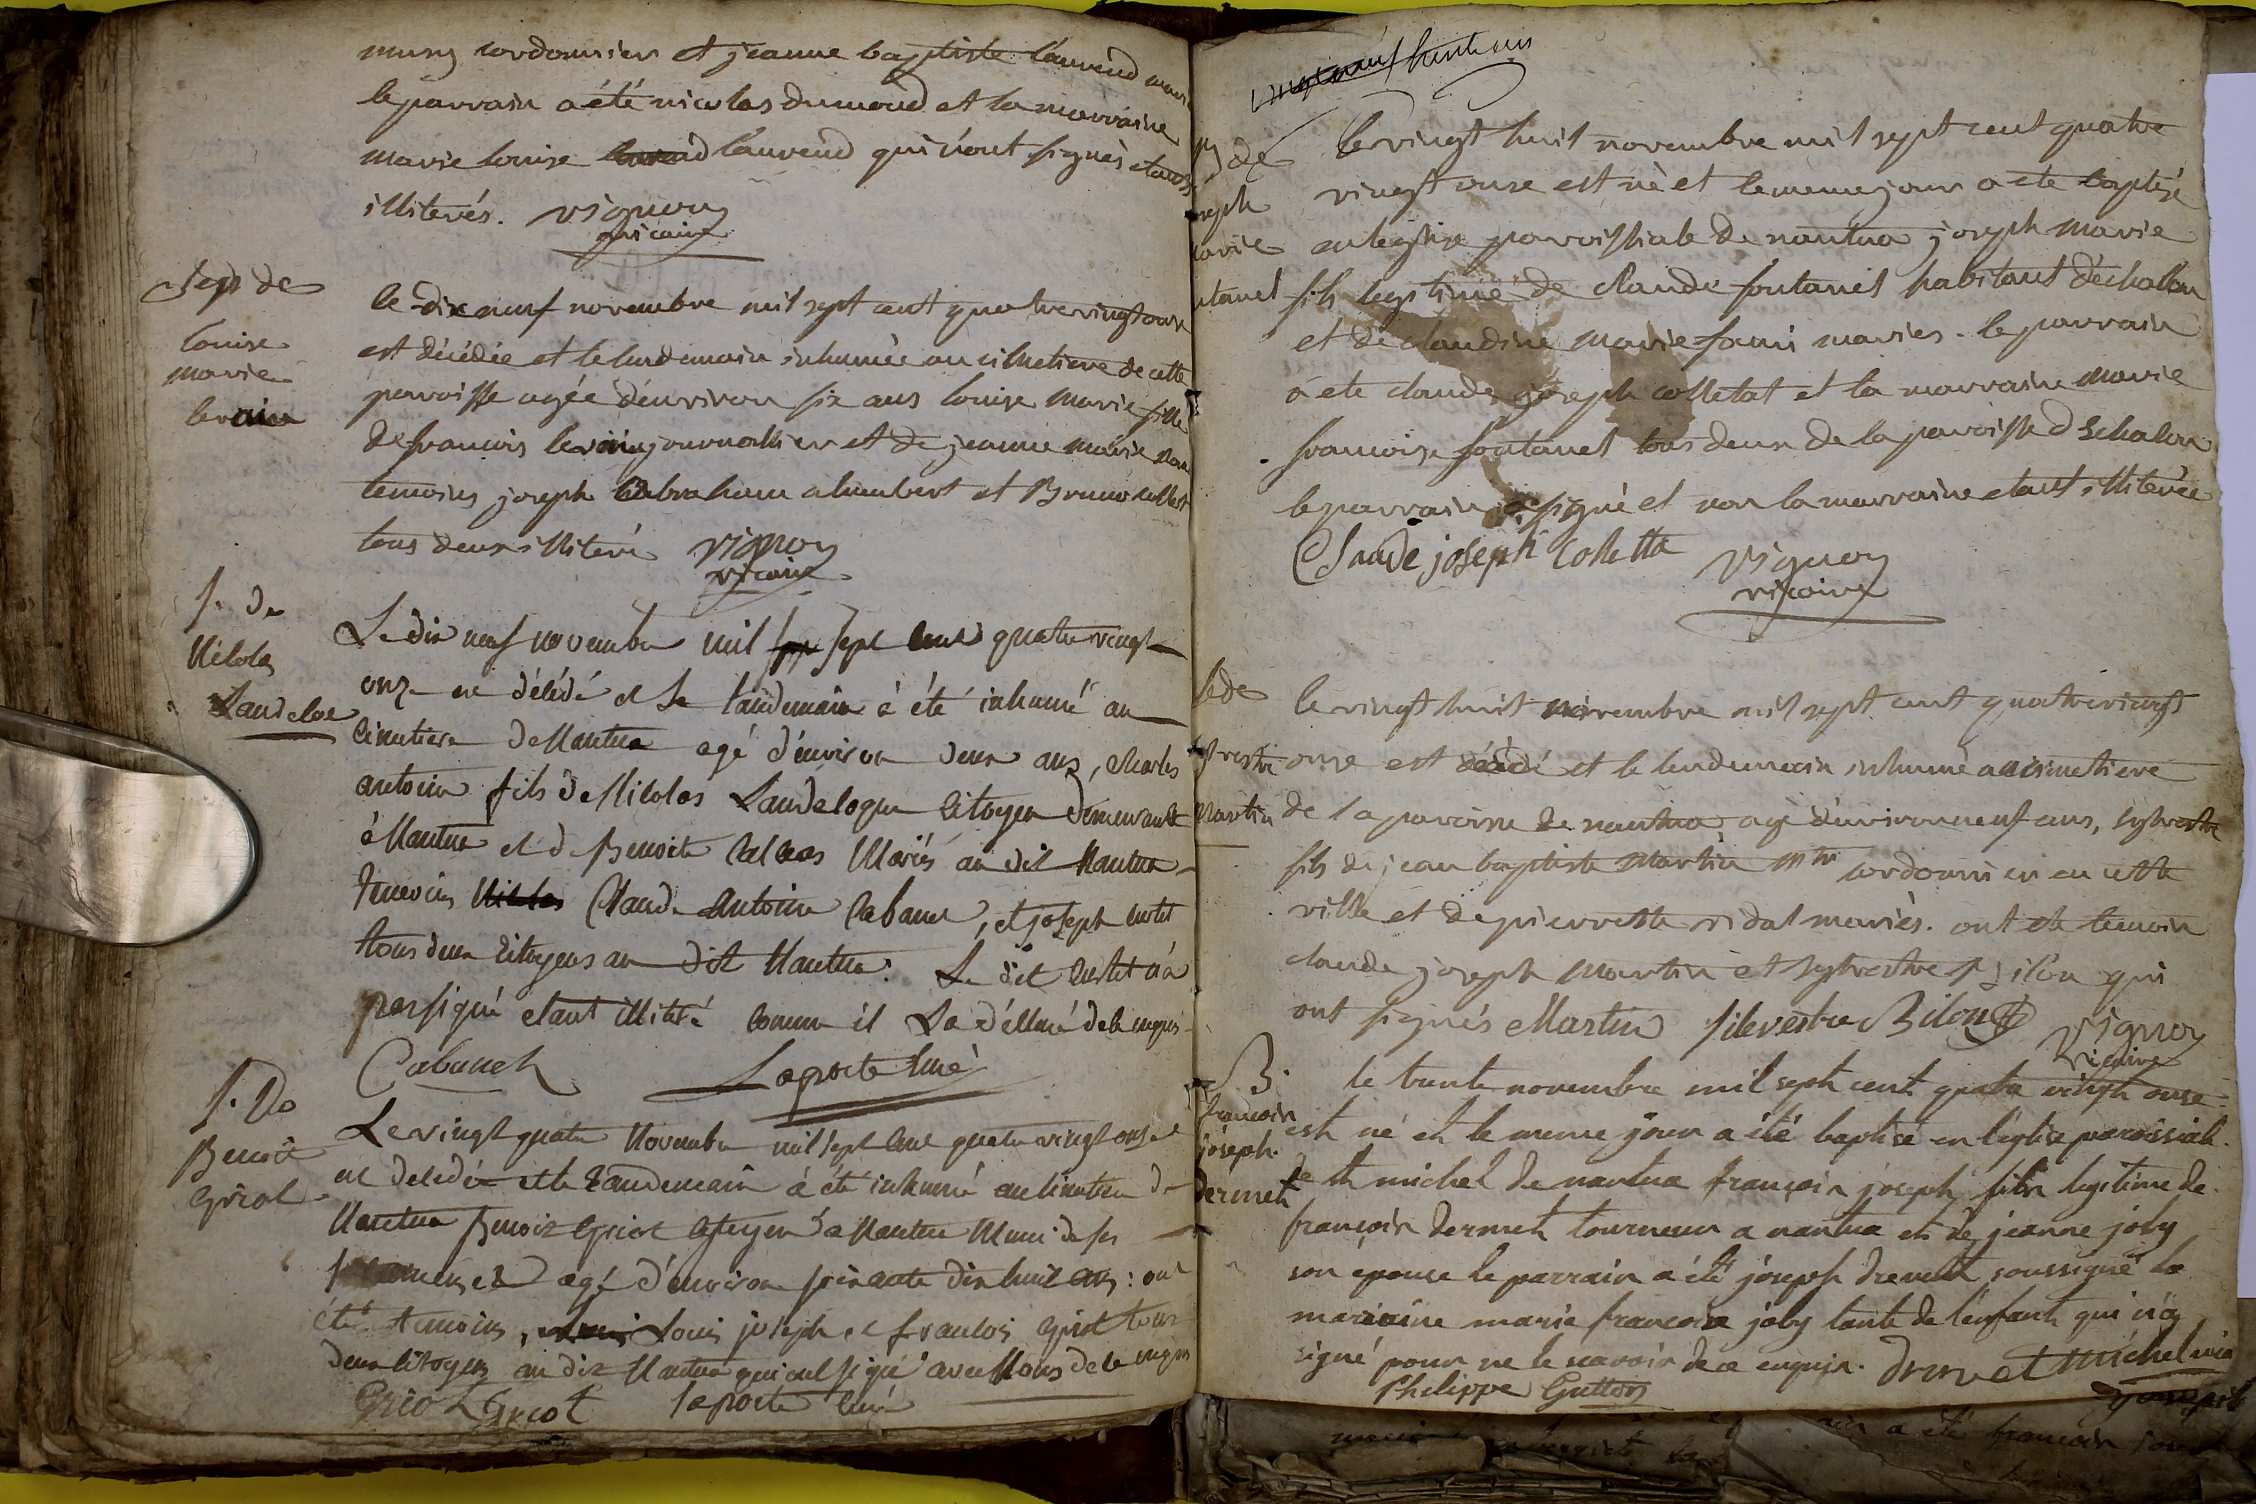 cordonnier et jeanne baptiste lauvend
le parrain a été nicolas dumond et la marraine
marie louise lauvend qui n'ont signés etants
illiterés. vignon
vicaire
Sep de
louise
marie
le dix neuf novembre mil sept cent quatre vingt onze
est décédée et le lendemain inhumée au cimetiere de cette
paroisse agée d'environ six ans louise marie fille
de francois journallier et de jeanne marie
temoins joseph abraham alumbert et Bruno
tous deux illiteré vignon
vicaire
S. de
Nicolas
Landeloe
Le dix neuf novembre mil sept cent quatre vingt
onze est décédé et le landemain à été inhumé au
cimetiere de Nantua agé d'environ deux ans, charles
antoine fils de Nicolas Landelogue citoyen demeurant
à Nantua et de Benoite Mariés au dit Nantua
temoins Claude Antoine Cabanet, et joseph curtet
tous deux citoyens au dit Nantua. Le dit curtet n'a
pas signé etant illitéré comme il l'a déclaré de ce enquis
Cabanet Laporte curé
S. De
Benoit
Griot
Le vingt quatre Novembre mil sept cent quatre vingt onze
est décédé et le landemain à été inhumé au cimetiere de
Nantua Benoit Griot citoyen à Nantua Muni de ses
sacremens et agé d'environ soixante dix huit ans: ont
été temoins, Louis joseph et francois Griot tous
deux citoyens au dit Nantua qui ont signé avec Nous de ce enquis
Griot Griot Laporte curé
vingt neuf
de
joseph
marie
fontanel
le vingt huit novembre mil sept cent quatre
vingt onze est nè et le meme jour a ete baptisé
en leglise paroissiale de nantua joseph marie
fils legitime de claude fontanel habitant d'échalon
et de claudine marie mariés. le parrain
a ete claude joseph colletat et la marraine marie
francoise fontanel tous deux de la paroisse d'Echalon
le parrain a signé et non la marraine etant illiterée
Claude joseph Colletta vignon
vicaire
Se de
sylvestre
Martin
le vingt huit novembre mil sept cent quatre vingt
onze est décédé et le lendemain inhumé au cimetiere
de la paroisse de nantua, agé d'environ neuf ans, sylvestre
fils de jean baptiste Martin Mtre cordonnier en cette
ville et de pierrette vidal mariés. ont ete temoin
claude joseph Martin et sylvestre Bilon qui
ont signés Martin silevestre Bilon vignon
vicaire
B.
francoin
joseph
dermet
le trente novembre mil septh cent quatre vingth onse
est né et le meme jour a été baptisé en l'eglise paroissiale
de st michel de nantua françoin joseph fils legitime de
francoin dermet tourneur a nantua et de jeanne joly
son épouse le parrain a été joseph drevet soussigné la
maraine marie francoise joly tante de l'enfant qui n'a
signé pour ne le scavoir de ce enquis. drevet michel
Philippe Gutton
a été francoin